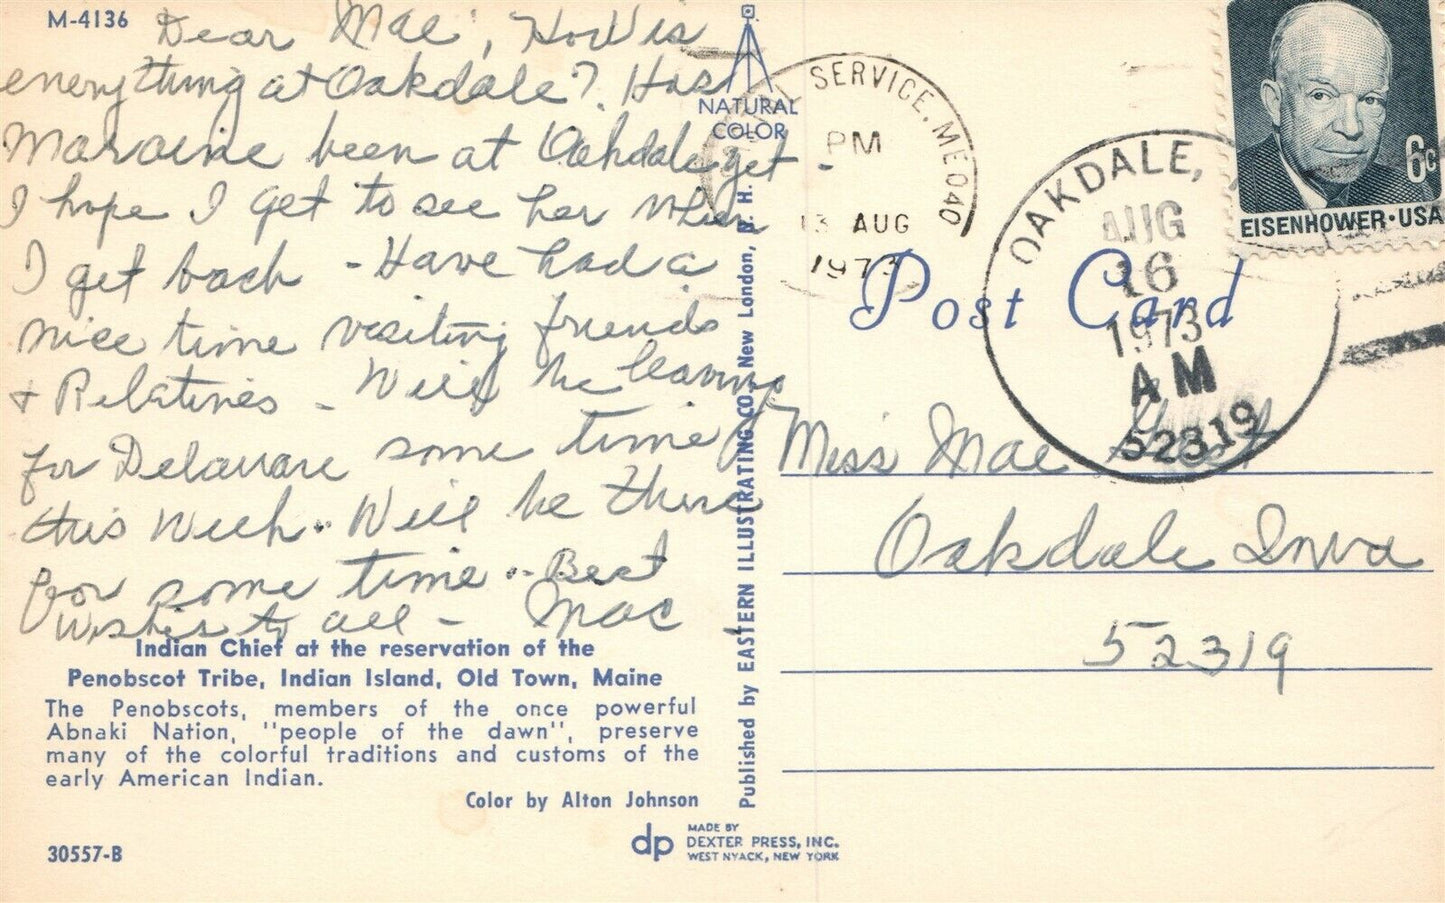 M-4136
Dear Mae, How is
everything at Oakdale? Has
been at Oakdale yet -
I hope I get to see her when
I get back - Have had a
nice time visiting friends
+ Relatives - Will be leaving
for Delaware some time
this week. Will be there
for some time - Best
Wishes to all - Mae
Indian Chief at the reservation of the
Penobscot Tribe, Indian Island, Old Town, Maine
The Penobscots, members of the once powerful
Abnaki Nation, "people of the dawn", preserve
many of the colorful traditions and customs of the
early American Indian.
Color by Alton Johnson
30557-B
NATURAL
COLOR
Published by EASTERN ILLUSTRATING CO., New London, N. H.
dp
MADE BY
DEXTER PRESS, INC.
WEST NYACK, NEW YORK
SERVICE, ME 040
PM
13 AUG
1973
Post Card
OAKDALE,
AUG
16
1973
AM
52319
6c
EISENHOWER·USA
Miss Mae
Oakdale Iowa
52319